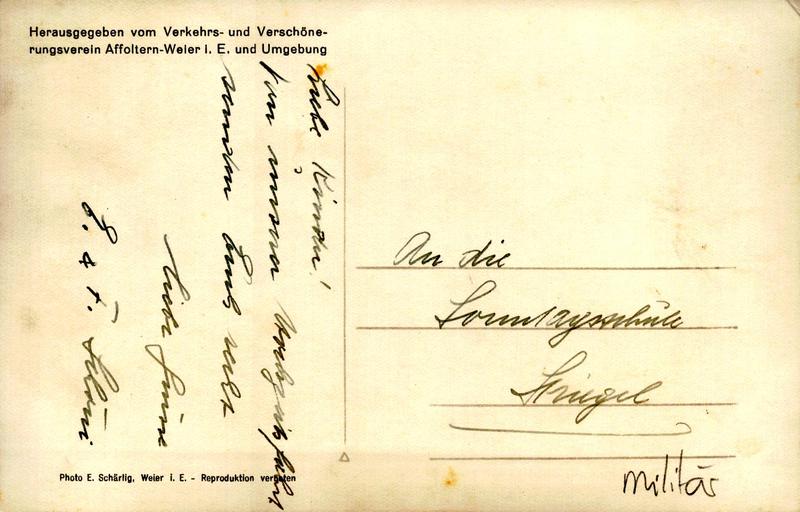 Herausgegeben vom Verkehrs- und Verschöne-
rungsverein Affoltern-Weier i. E. und Umgebung
Liebe Kinder!
Von unserer Hochzeitsfahrt
senden Euch recht
liebe Grüsse
E. & F.
An die
Sonntagsschule
Striegel
Militär
Photo E. Schärlig, Weier i. E. - Reproduktion verboten